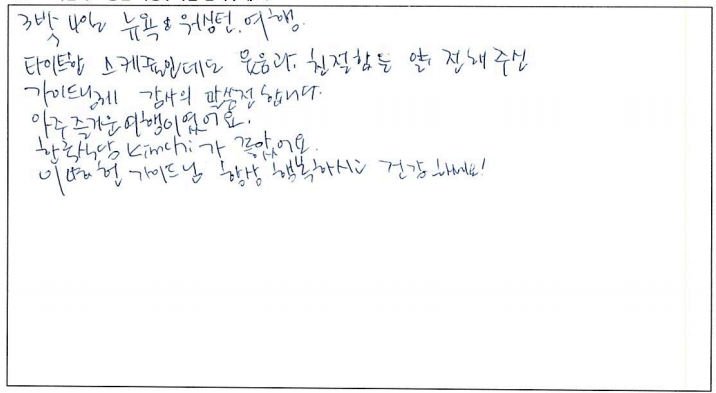 3박 4일 뉴욕 & 워싱턴. 여행.
타이트한 스케쥴인데도 웃음과, 친절함을 전해주신
가이드님께 감사의 말씀전합니다.
아주 즐거운 여행이었어요.
한국식당 Kimchi가 좋았어요.
가이드님 항상 행복하시고 건강하세요!